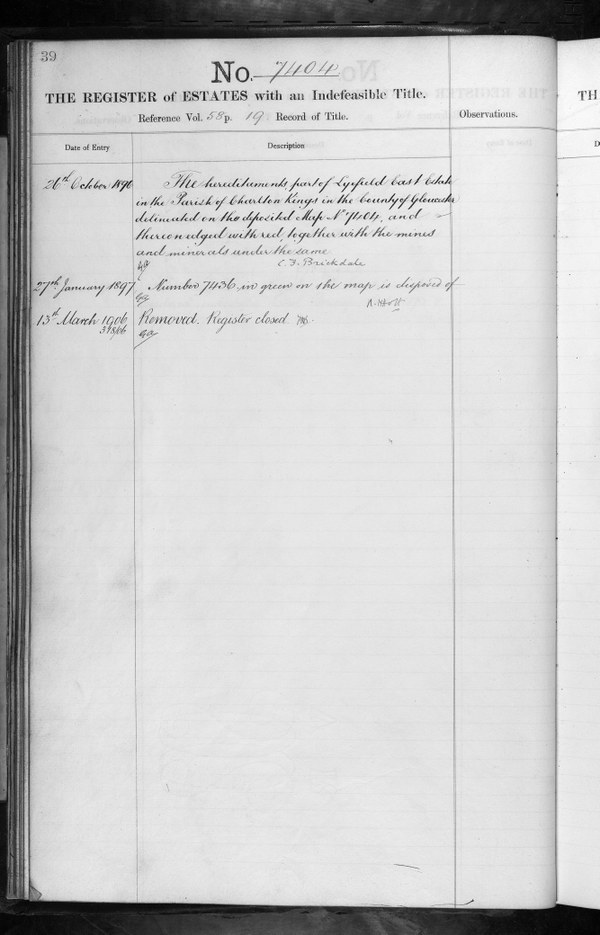 39
No. 7404
THE REGISTER of ESTATES with an Indefeasible Title.
Reference Vol. 58 p. 19 Record of Title.
Observations.
Date of Entry
Description
26th October 1896
The hereditaments part of Lyefield East Estate
in the Parish of Charlton Kings in the County of Gloucester
delineated on the deposited Map No 7404, and
thereon edged with red, together with the mines
and minerals under the same
C. F. Brickdale
27th January 1897
Number 7436 in green on the map is disposed of
R. Holt
13th March 1906
Removed. Register closed
398/06
TH
D